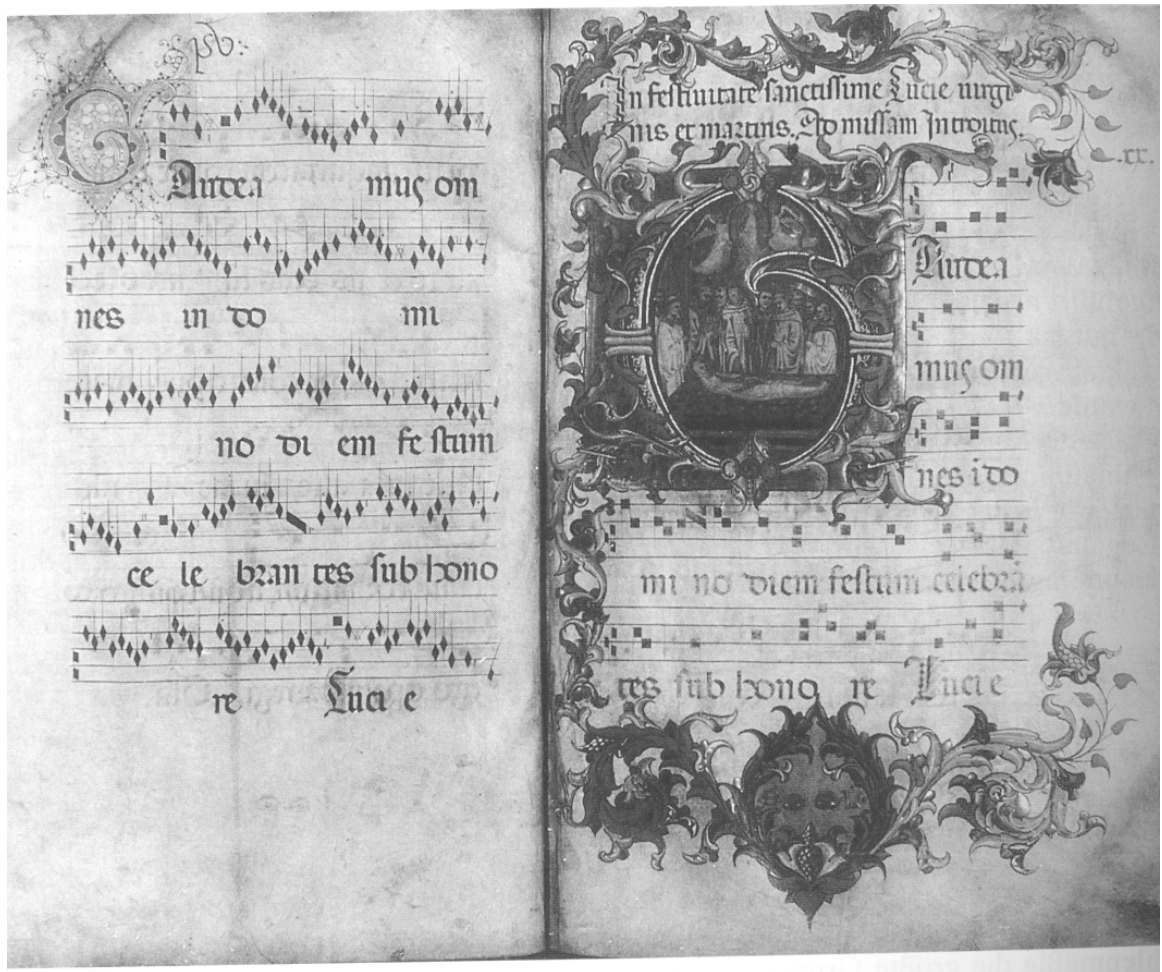 GAudea mus om
nes in do mi
no di em fe stum
ce le bran tes sub hono
re Luci e
In festiuitate sanctissime Lucie uirgi
nis et martiris. Ad missam Introitus.
.xx.
GAudea
mus om
nes ī do
mi no diem festum celebrā
tes sub hono re Luci e